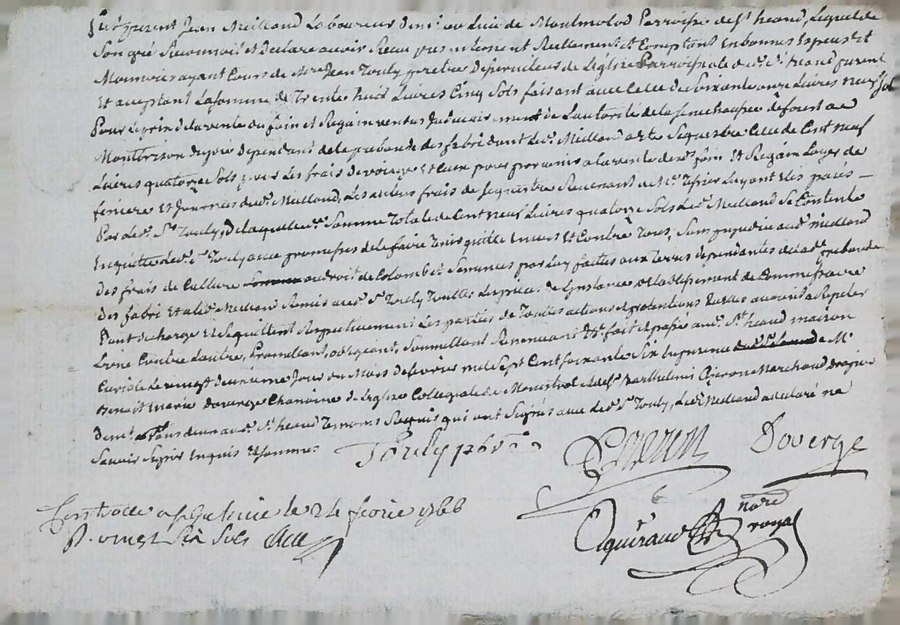 fut présent Jean Meilland Laboureur dem.t au Lieu de Montmolod Parroisse de S.t heand, Lequel de
Son gré Reconnoit et Declare avoir Receu presentement Reellement et Comptant En bonnes Especes Et
Monnoies ayant Cours de M.re Jean Touly pretre Desserviteur de L'eglise Parroissiale de S.t heand present
Et acceptant La somme de Trente huit Livres Cinq Sols faisant avec Celle de Soixante onze Livres neuf Sols
Pour Le prix de la vente du foin et Regain vendus Judiciairement de L'autorité de La senechaussée de forest a
Montbrison du pré dependant de la prebande des fabri dont Led. Meilland a été Sequestre Celle de Cent neuf
Livres quatorze Sols pour Les frais de voiage Et Eux pour parvenir a la vente de foin Et Regain Loyer de
feniere Et Journées dud. Meilland, Les autres frais de Sequestre Revenant de M.e Tixier Luy ont Etés paiés
Par Led. S.r Touly, De laquelle Somme Totale de Cent neuf Livres quatorze Sols Led. Meilland Se Contente
En quitte led. S.r Touly avec promesses de le faire Tenir quitte Envers Et Contre Tous, Sans prejudice aud. Meilland
des frais de Culture au droit de Colombet Semences par Luy faites aux Terres dependantes de lad. prebande
des fabri Et a led. Meilland Remis aud. S.r Touly Toutes Les pieces Et Etablissement de Commissaire
Dont decharge et Se quittent Respectivement Les parties de Toutes actions et pretentions Sans avoir rien a Repeter
L'une Contre L'autre, Promettant, obligeant, Soumettant Renonçant &c. fait et passé aud. S.t heand maison
Curiale Le vingt deuxieme Jour du Mois de fevrier mil Sept Cent Soixante Six En presence de M.e
Benoit Marie Doverge Chanoine de L'eglise Collegiale de Monistrol Et de S.r Barthelemi Marchand drapier
dem.t aud. S.t heand Temoins Requis qui ont Signés avec Led. S.r Touly, Led. Meilland a declaré ne
Savoir Signer Enquis Et Sommé
Touly ptre Doverge
Controlle a S.t Galmier le 24 fevrier 1766
R. vingt Six Sols
Aguiraud nore royal